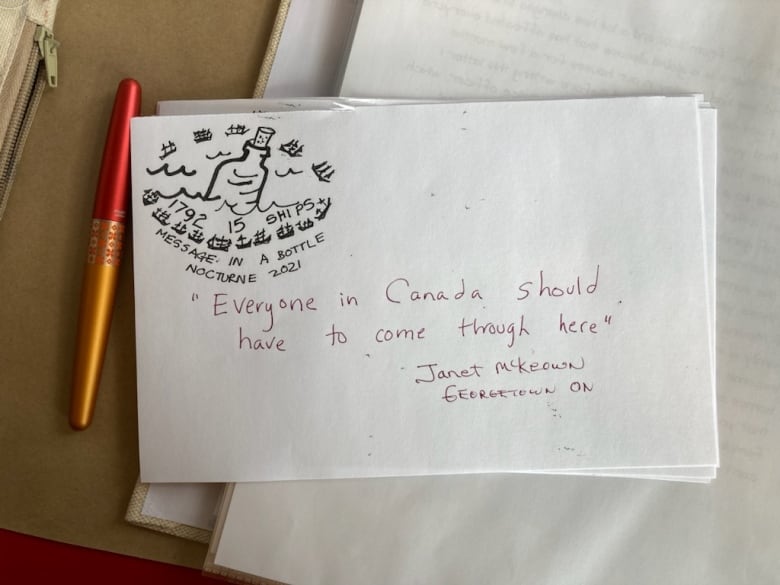 1792 15 SHIPS
MESSAGE IN A BOTTLE
NOCTURNE 2021
"Everyone in Canada should
have to come through here"
Janet McKeown
GEORGETOWN ON